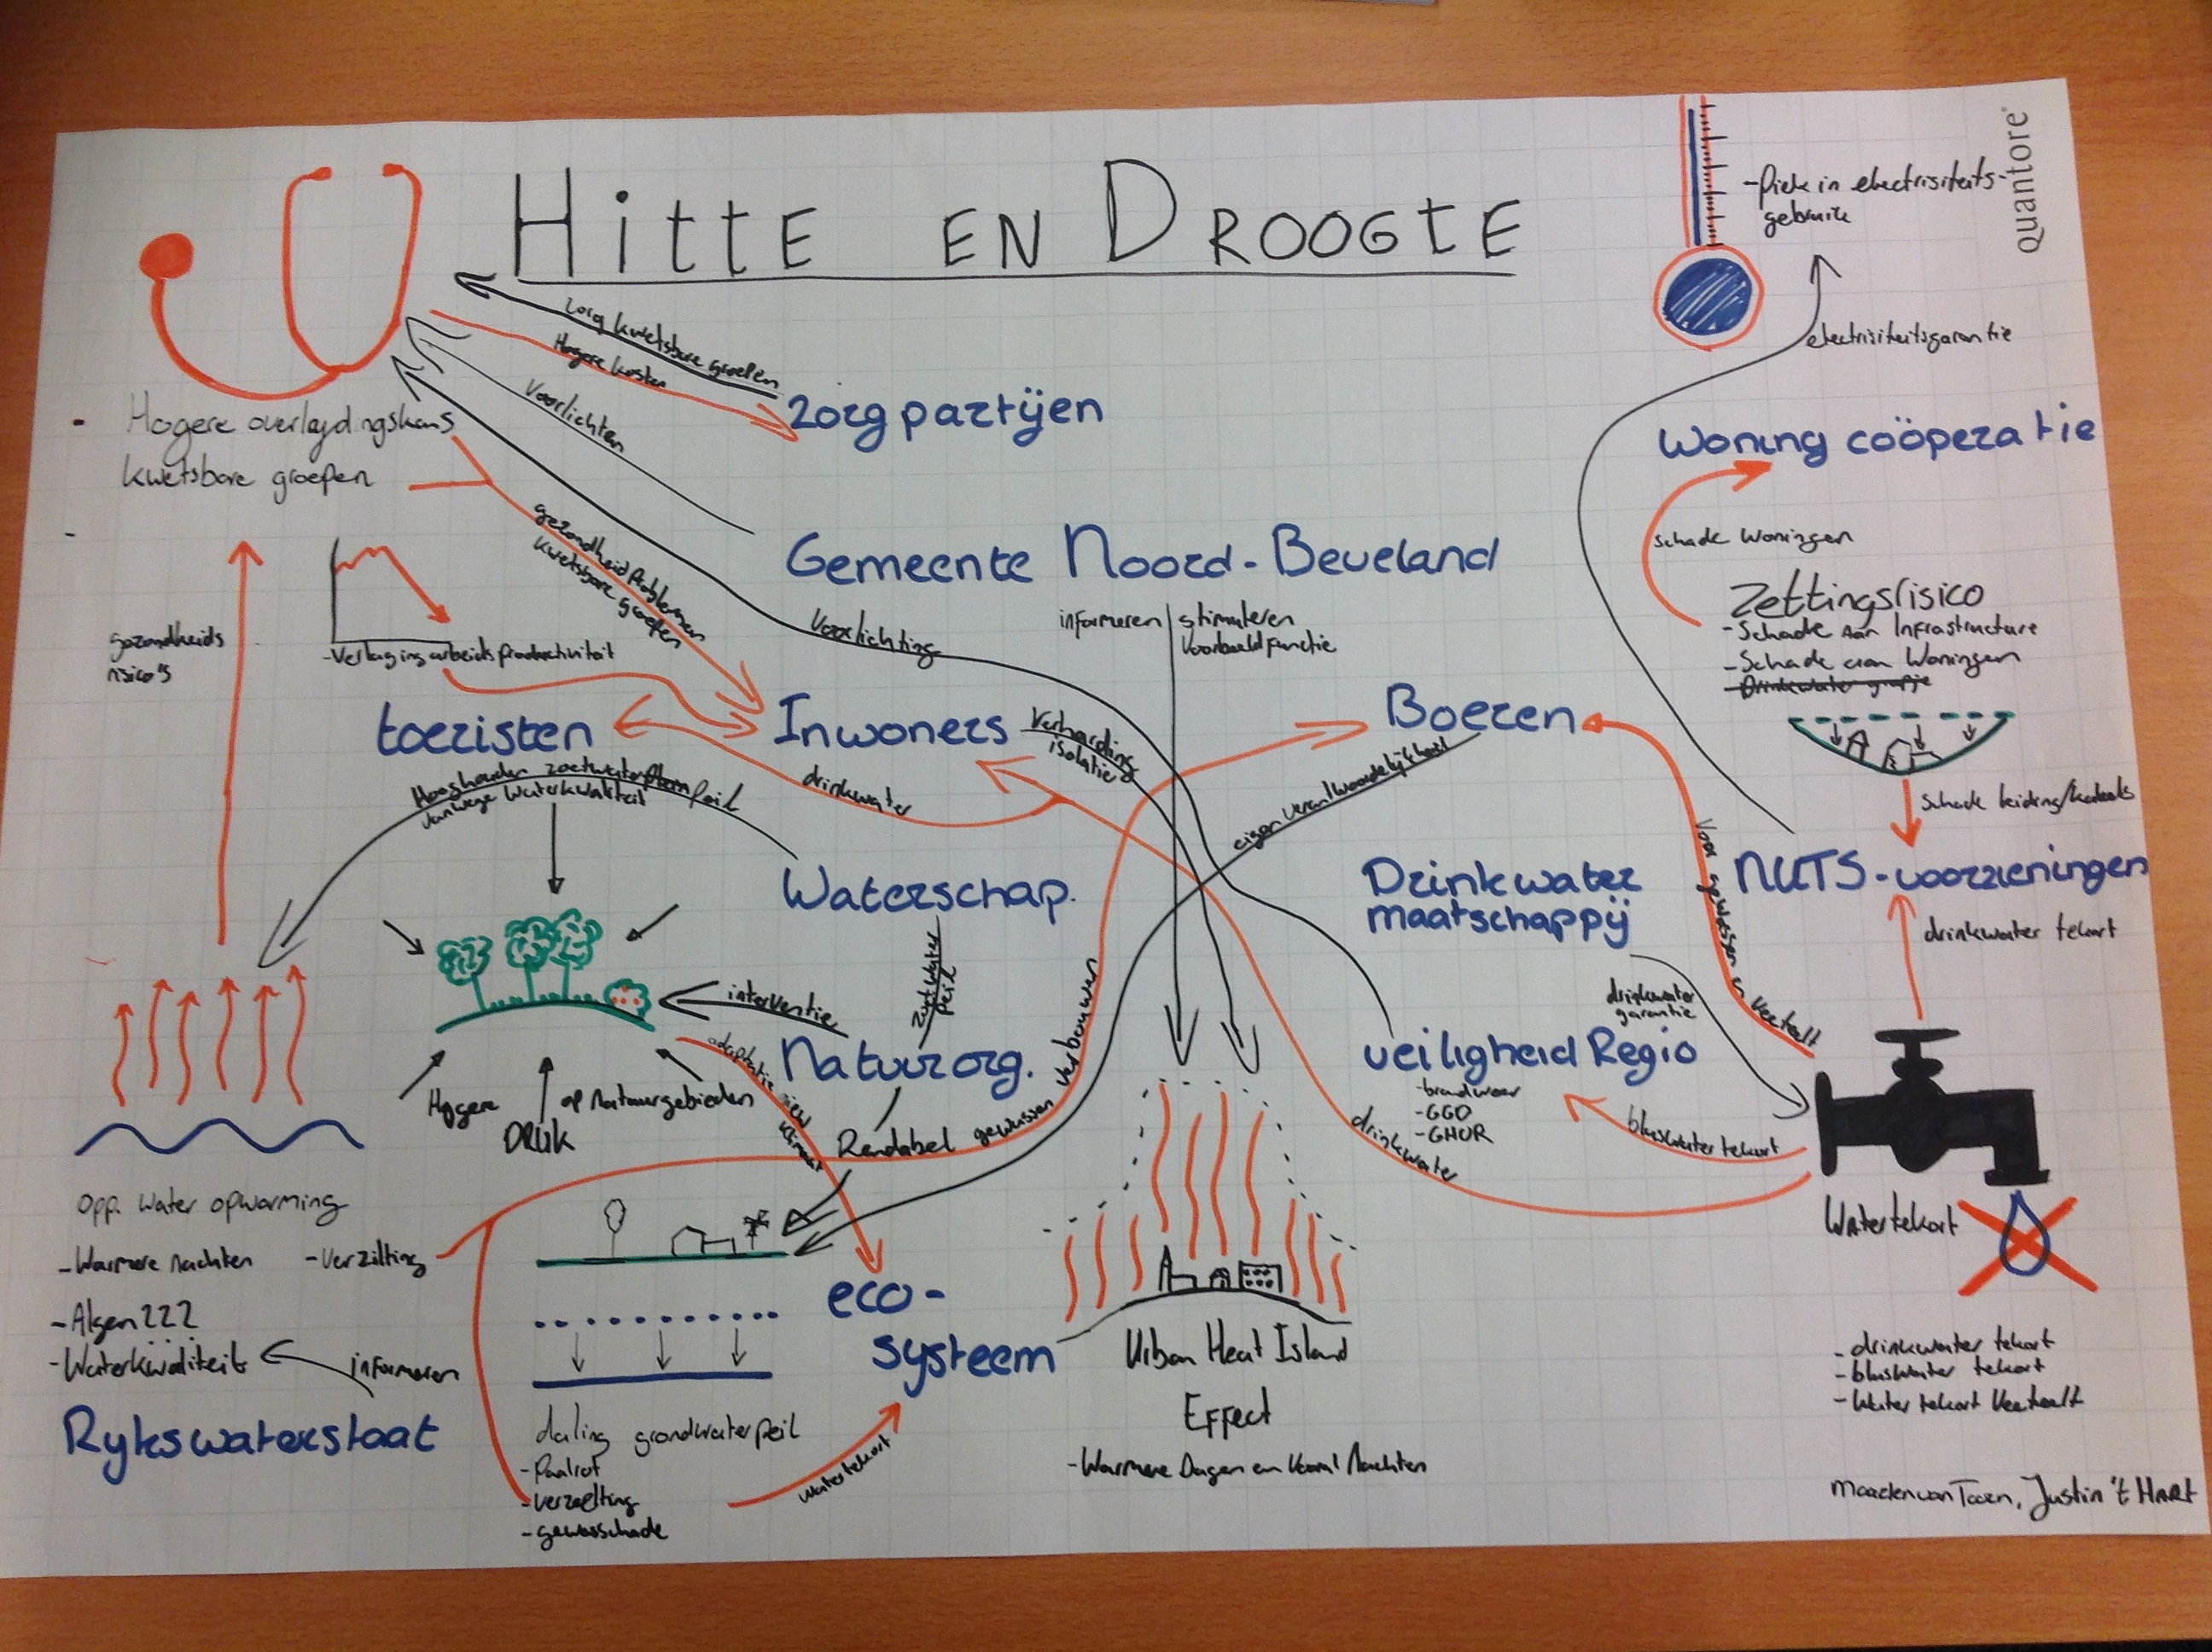 Hitte en Droogte
quantore
-Piek in electrisiteits-
gebruik
electrisiteitsgarantie
zorg kwetsbare groepen
Hogere kosten
Voorlichten
Zorgpartijen
Hogere overlijdingskans
kwetsbare groepen
Woning coöperatie
schade woningen
gezondheidproblemen
kwetsbare groepen
Gemeente Noord-Beveland
informeren
stimuleren
Voorbeeldfunctie
Voorlichting
Zettingsrisico
-Schade aan Infrastructure
-Schade aan Woningen
gezondheids
risico's
-Verlaging arbeidsproductiviteit
toeristen
Inwoners
Verharding
isolatie
Boeren
eigen verantwoordelijkheid
drinkwater
Hooghouden zoetwater peil
vanwege waterkwaliteit
schade leiding/kabels
Waterschap.
Drinkwater
maatschappij
NUTS-voorzieningen
Voor gewassen en veeteelt
drinkwater tekort
Zoetwater
peil
interventie
drinkwater
garantie
Natuurorg.
adaptatie
klimaat
Verbouwen
veiligheid Regio
-brandweer
-GGD
-GHOR
Hogere
DRUK
op Natuurgebieden
Rendabel gewassen
bluswater tekort
drinkwater
Watertekort
opp. water opwarming
-Warmere nachten
-Verzilting
-Algen
-Waterkwaliteit
informeren
eco-
systeem
Urban Heat Island
Effect
-Warmere Dagen en vooral Nachten
-drinkwater tekort
-bluswater tekort
-Water tekort Veeteelt
Rykswaterstaat
daling grondwaterpeil
-Paalrot
-verzilting
-gewasschade
Watertekort
Justin 't Hart